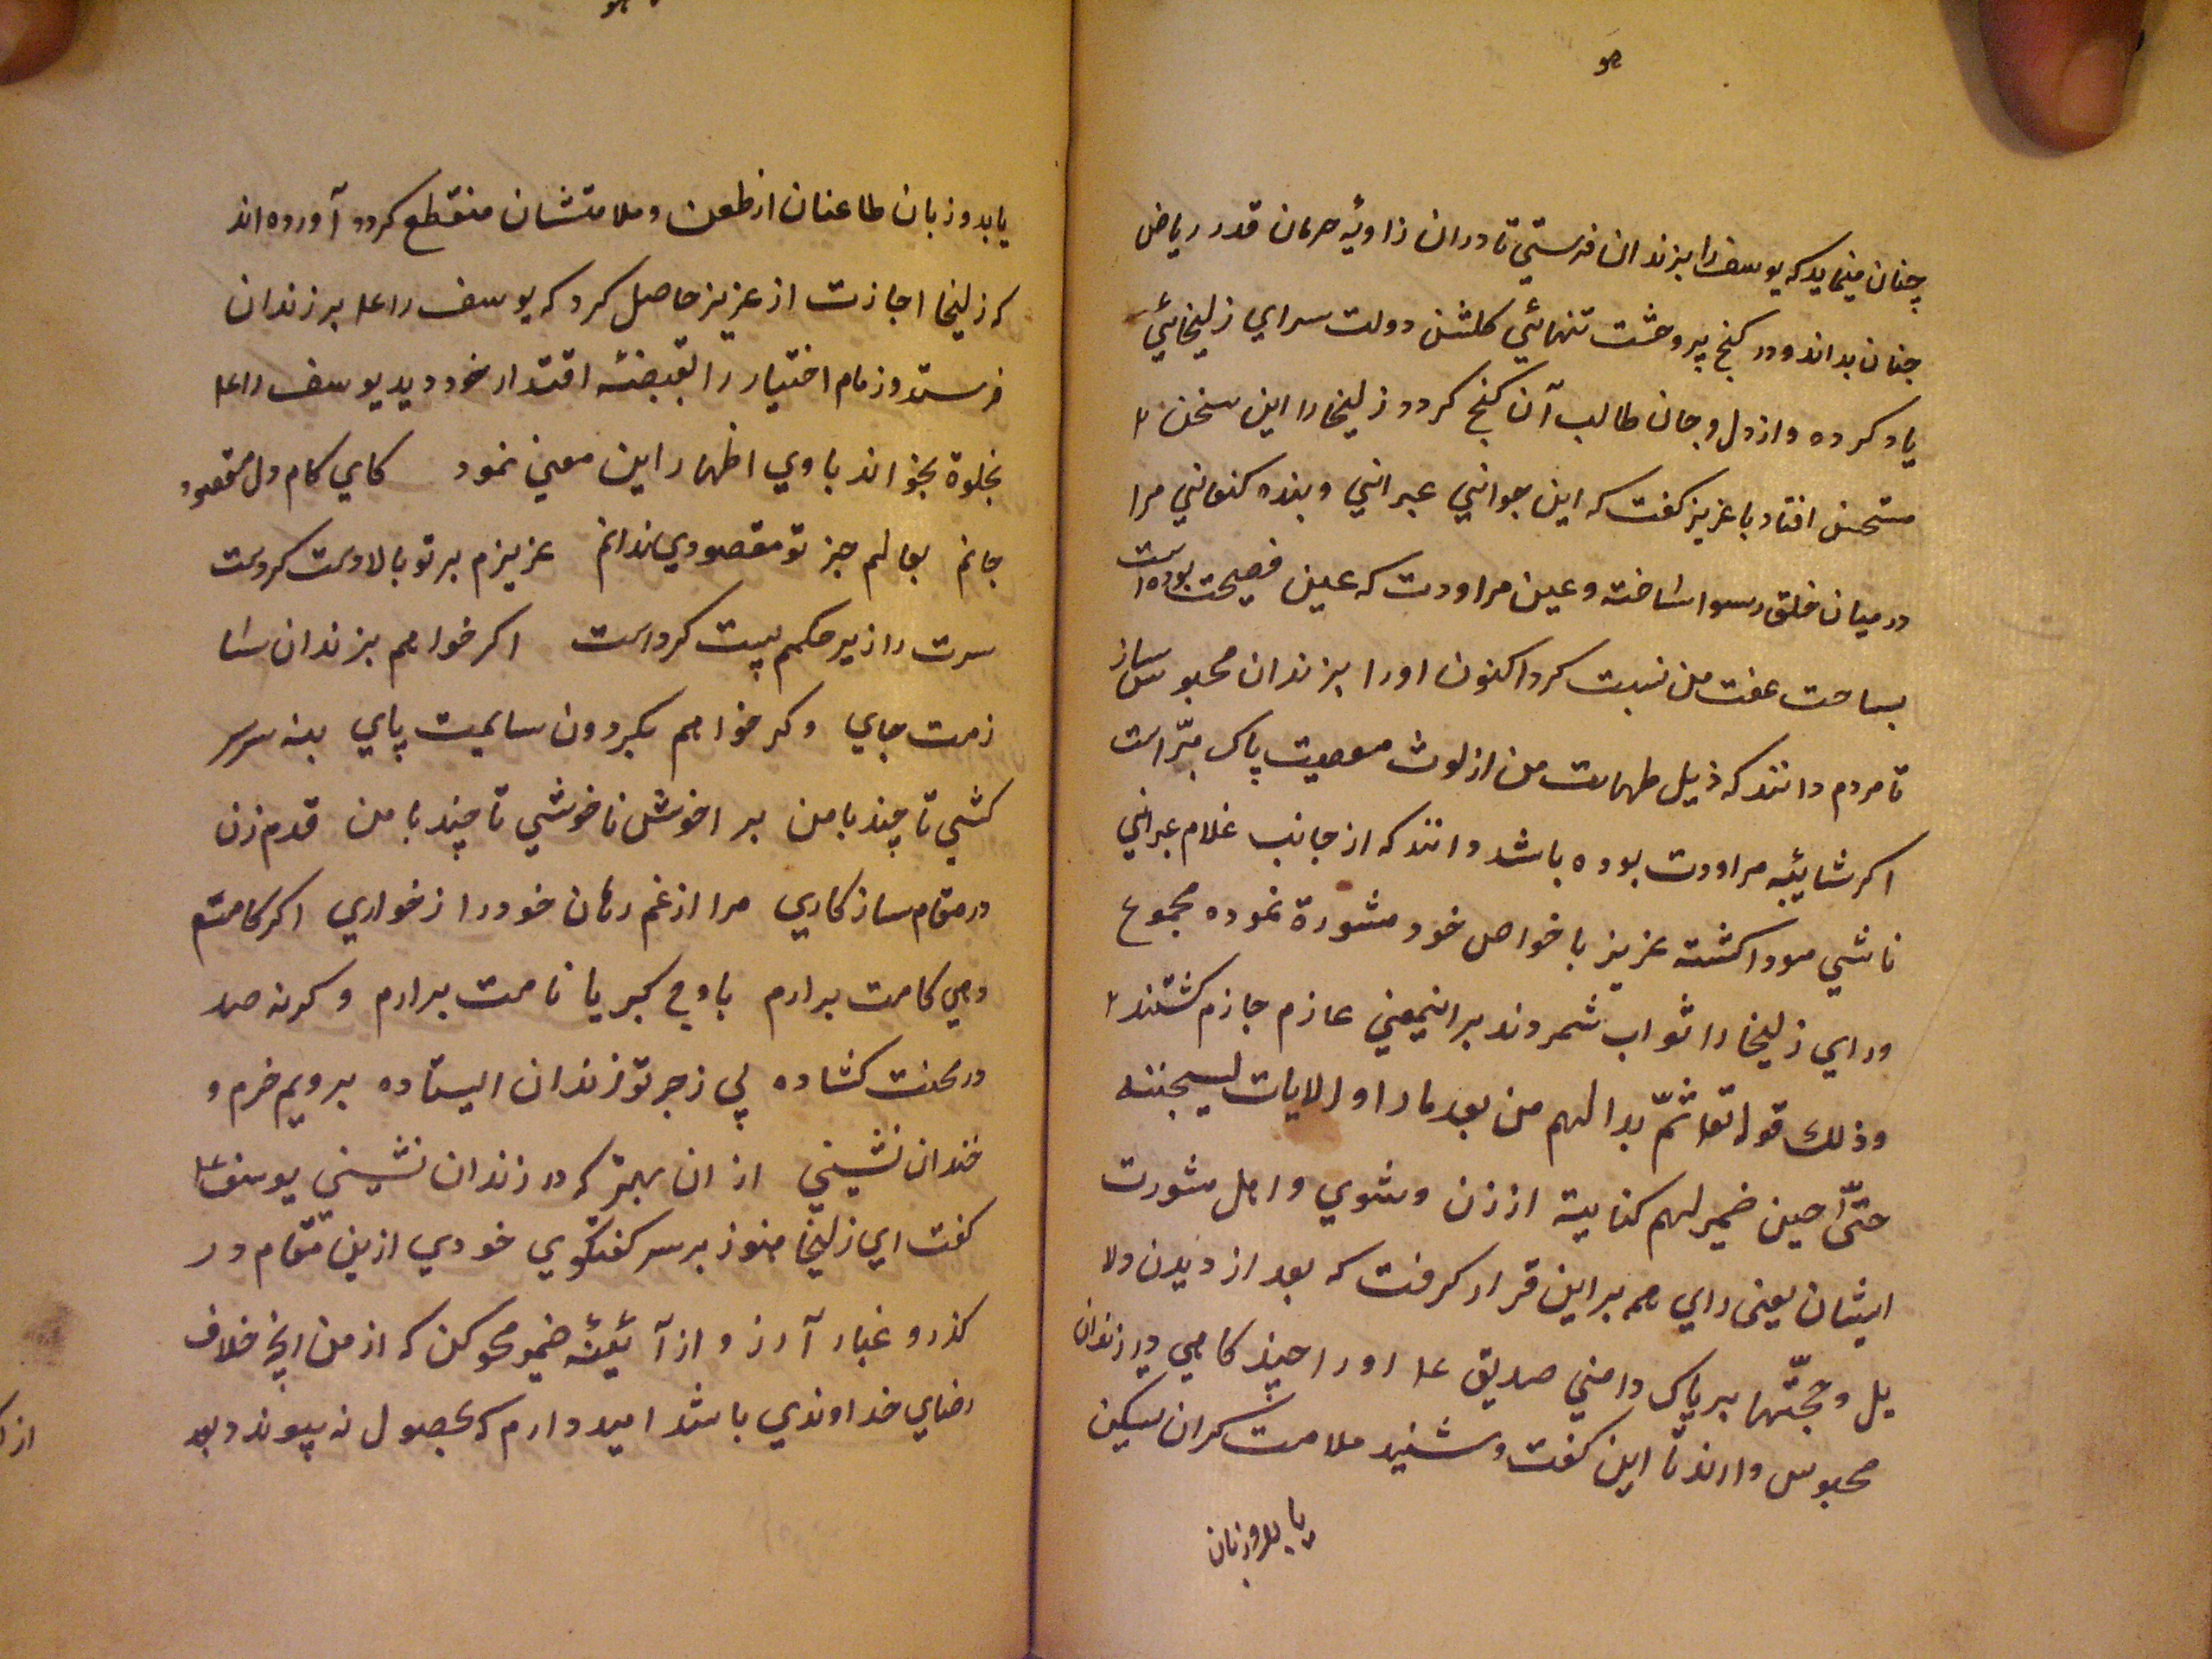 چنان مینماید که یوسف را بزندان فرستی تا دران زاویهٔ حرمان قدر ریاض
جنان بداند و در کنج پر وحشت تنهائی کلشن دولت سرای زلیخائی
یاد کرده و از دل و جان طالب آن کنج کردد زلیخا را این سخن
مستحسن افتاد با عزیز کفت که این جوانی عبرانی و بنده کنعانی مرا
در میان خلق رسوا ساخته و عین مراودت که عین فصیحت بوده است
بساحت عفت من نسبت کرد اکنون او را بزندان محبوس ساز
تا مردم دانند که ذیل طهارت من از لوث معصیت پاک مبرّاست
اکر شایبٔه مراودت بوده باشد دانند که از جانب غلام عبرانی
ناشی کشته عزیز با خواص خود مشورة نموده مجموع
ورای زلیخا را ثواب شمردند بر اینمعنی عازم جازم کشتند
وذلك قوله تعا ثمّ بدا لهم من بعد ما راو الایات لیسجننه
حتّی حین ضمیر لهم کنایة از زن و شوی و اهل مشورت
ایشان یعنی رای همه بر این قرار کرفت که بعد از دیدن دلا
یل و حجّتها بر پاک دامنی صدیق ع‍ا او را چند کاهی در زندان
محبوس دارند تا این کفت و شنید ملامت کران تسکین
یابد و زبان
یابد و زبان طاعنان از طعن و ملامتشان منقطع کردد آورده اند
که زلیخا اجازت از عزیز حاصل کرد که یوسف را ع‍ا بر زندان
فرستد و زمام اختیار را بقبضهٔ اقتدار خود دید یوسف را ع‍ا
بخلوة بخواند با وی اظهار این معنی نمود کای کام دل مقصود
جانم بعالم جز تو مقصودی ندانم عزیزم بر تو بالادست کردست
سرت را زیر حکمم پست کرداست اکر خواهم بزندان سا
زمت جای وکر خواهم بکردون سایمت پای بنه سر سر
کشی تا چند با من برا خوش ناخوشی تا چند با من قدم زن
در مقام سازکاری مرا از غم رهان خود را ز خواری اکر کامم
دهی کامت برارم باوج کبریا نامت برارم وکرنه صد
در محنت کشاده پی زجر تو زندان ایستاده برویم خرم و
خندان نشینی از ان بهتر که در زندان نشینی یوسف ع‍ا
کفت ای زلیخا هنوز بر سر کفتکوی خودی ازین مقام در
کذر و غبار آرز و از آئینهٔ ضمیر محو کن که از من انچه خلاف
رضای خداوندی باشد امید دارم که بحصول نه پیوندد بعد